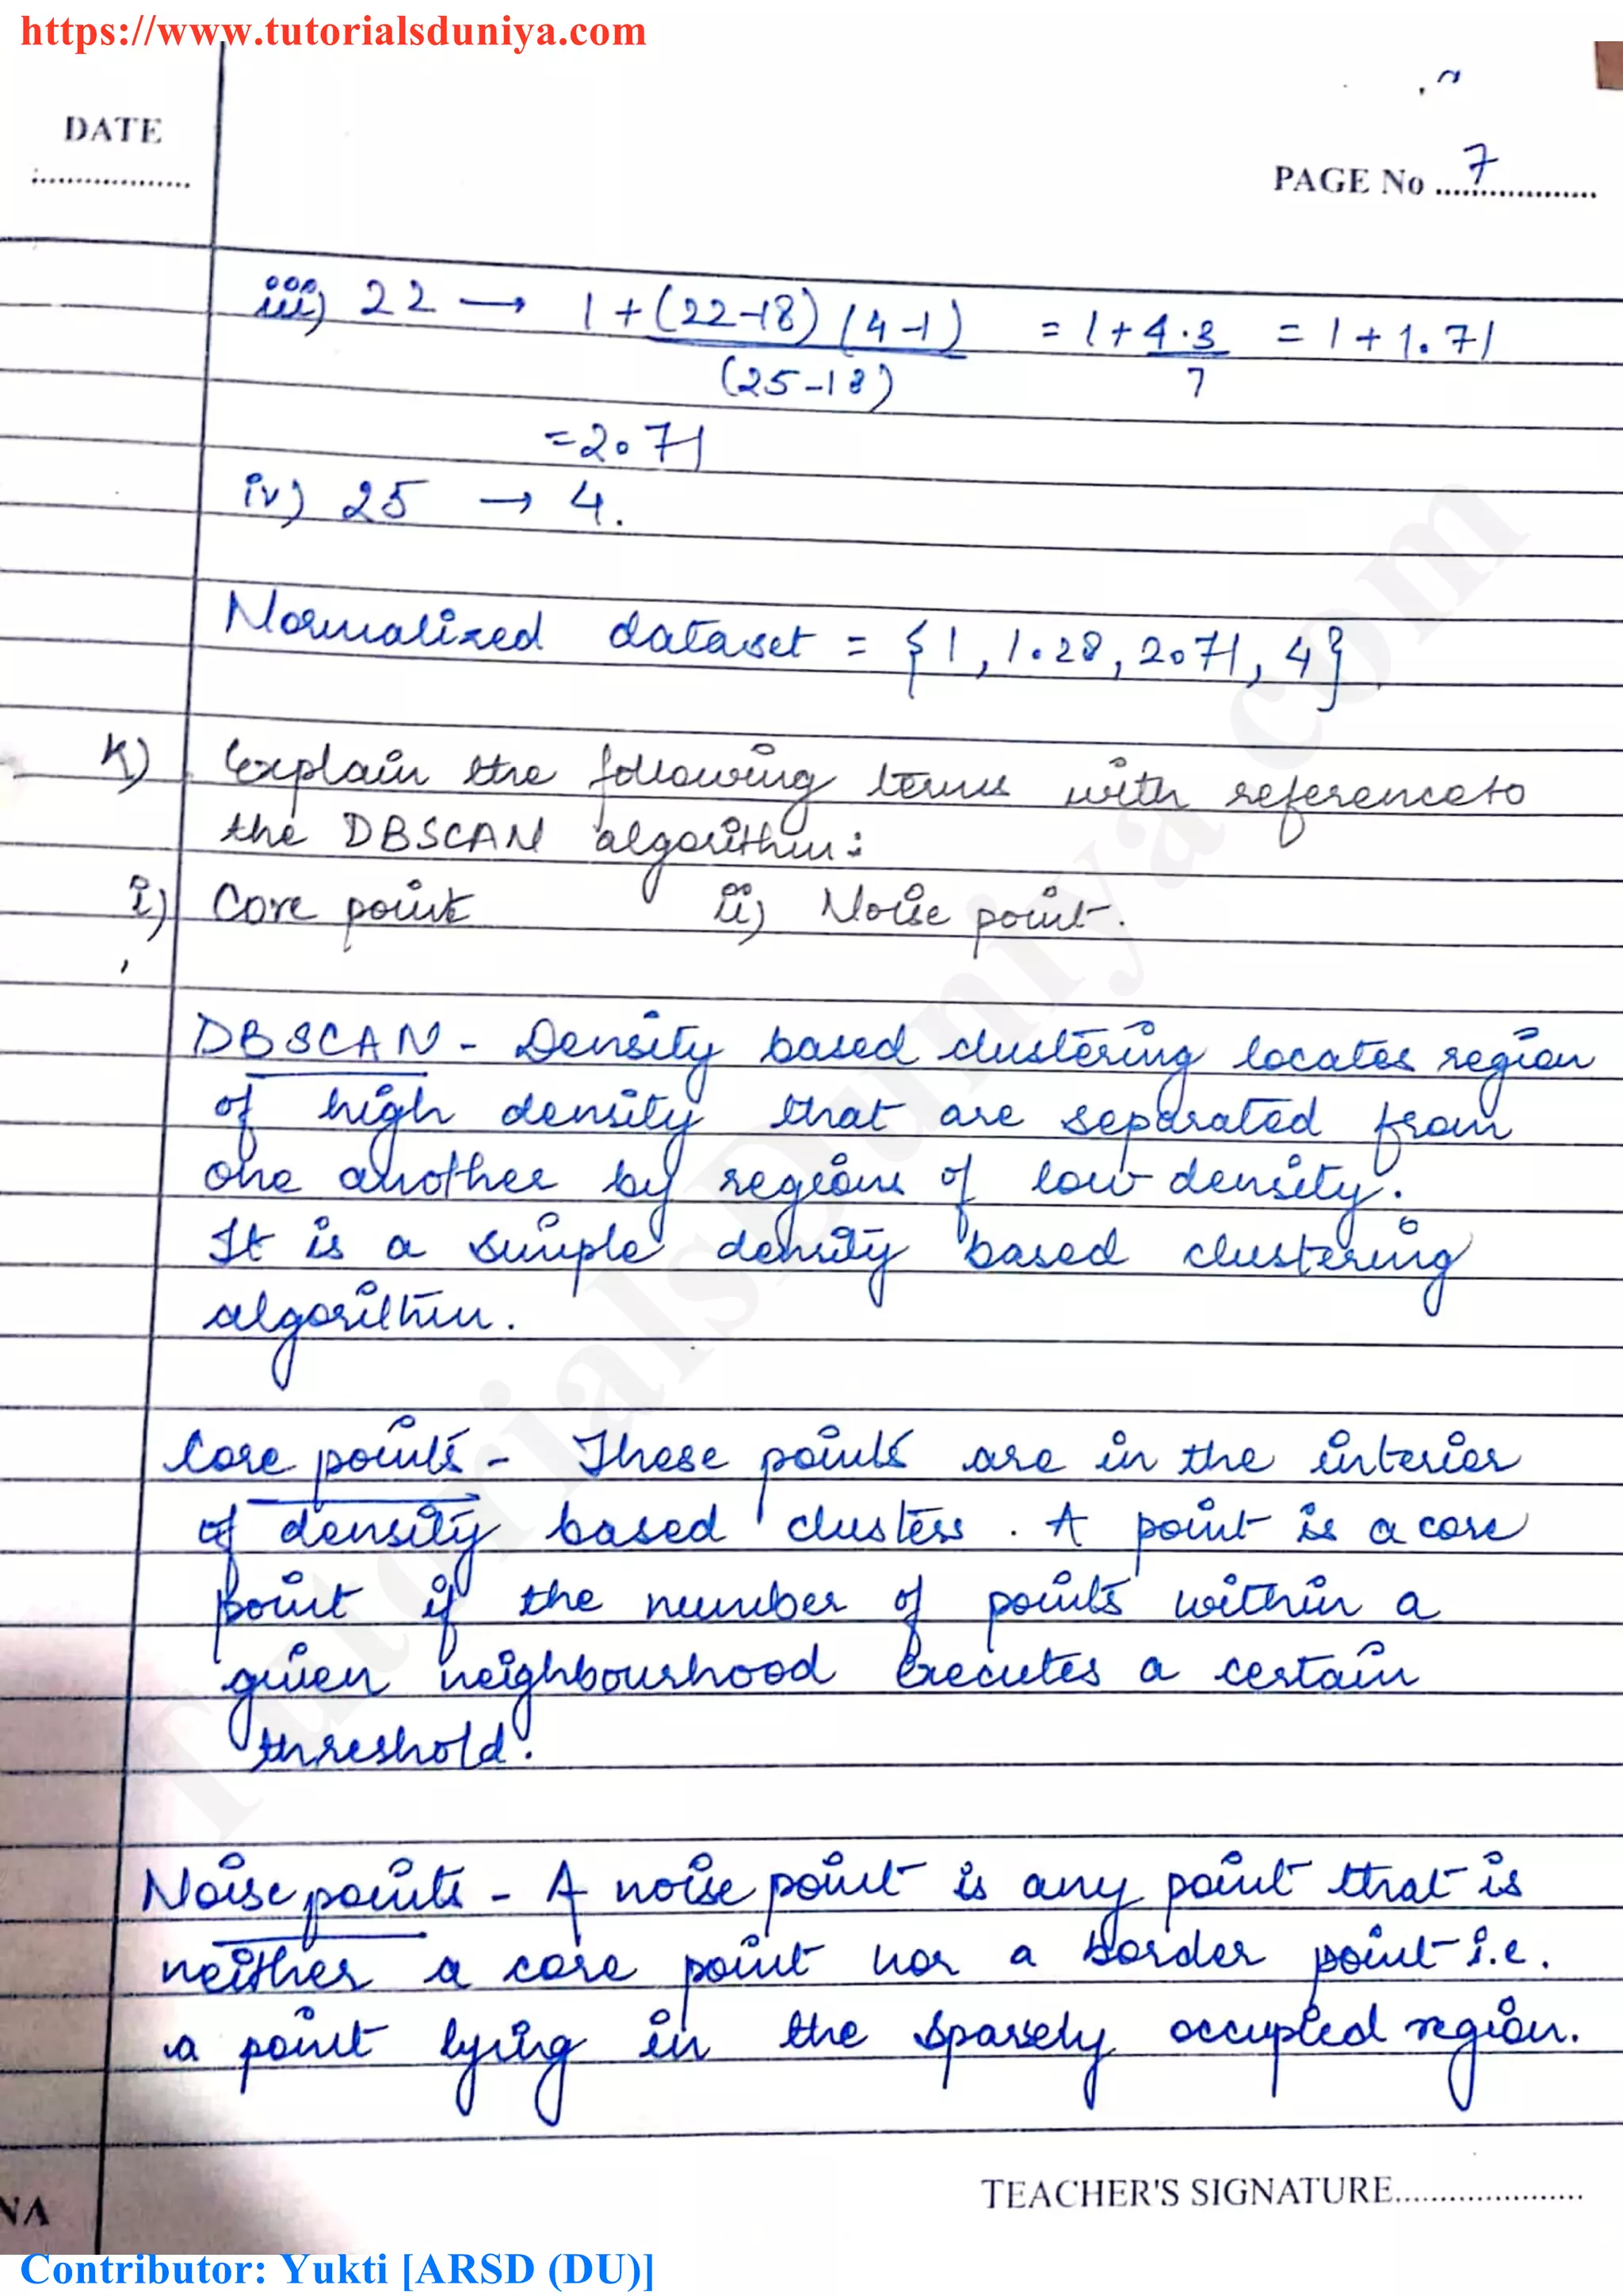 https://www.tutorialsduniya.com
DATE
PAGE No 7
iii) 22 → 1 + (22-18) (4-1) / (25-18) = 1 + 4.3 / 7 = 1 + 1.71
= 2.71
iv) 25 → 4.
Normalized dataset = {1, 1.28, 2.71, 4}
k) Explain the following terms with reference to
the DBSCAN algorithm:
i) Core point ii) Noise point.
DBSCAN - Density based clustering locates region
of high density that are separated from
one another by regions of low density.
It is a simple density based clustering
algorithm.
Core points - These points are in the interior
of density based clusters. A point is a core
point if the number of points within a
given neighbourhood executes a certain
threshold.
Noise points - A noise point is any point that is
neither a core point nor a border point i.e.
a point lying in the sparsely occupied region.
TEACHER'S SIGNATURE
NA
TutorialsDuniya.com
Contributor: Yukti [ARSD (DU)]